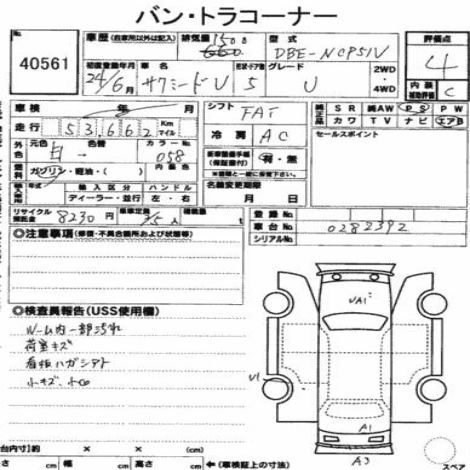 バン・トラコーナー
40561
車歴 (自家用以外は記入) 排気量 1500 型式 DBE-NCP51V 評価点
初度登録年月 24/6月 車名 サクシードV 形状・ドア数 5 グレード U 2WD・4WD 4
内装補助評価 C
車検 年 月 シフト FAT 純正品 SR 純AW PS PW
走行 53,662 Km マイル カワ TV ナビ エアB
外色 元色 白 色替 カラーNo 058 冷房 AC セールスポイント
燃料 ガソリン・軽油・( ) 内装色 新車整備手帳(保証書付) 有・無
輸入車 年式 輸入区分 ハンドル ディーラー・並行 左・右 名義変更期限 月 日
リサイクル預託金 8230円 乗車定員 2/5人 積載量 t 登録No
車台No 0282392
シリアルNo
◎注意事項 (修復・不具合箇所および状態等)
◎検査員報告 (USS使用欄)
ルーム内一部汚れ
荷室キズ
看板ハガシアト
小キズ、小凹
UA1
U1
A1
A3
台内寸法)約 × × (cm)
(cm) 幅 (cm) 高さ (cm) ←(車検証上の寸法)
スペア